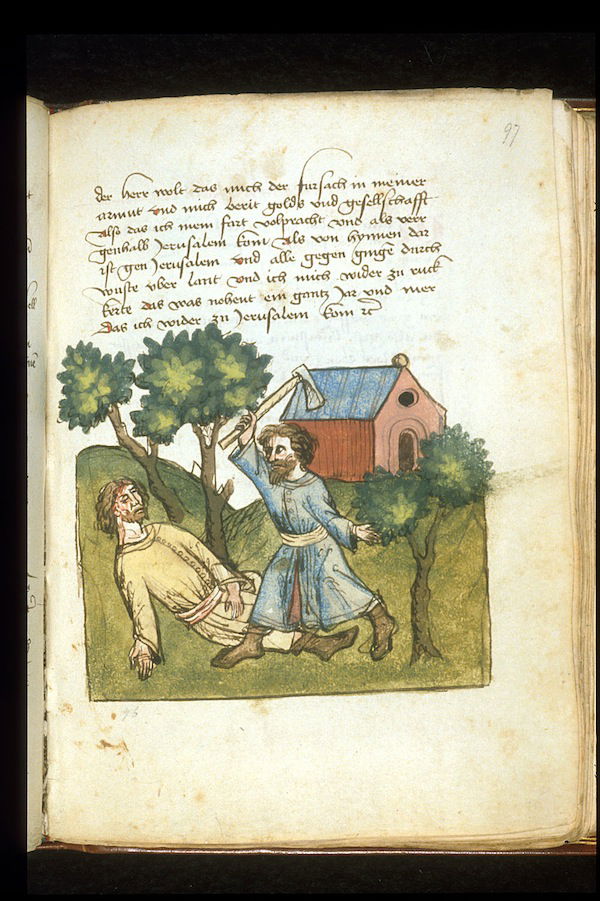 97
der herr wolt das mich der fursach in meiner
armut vnd mich berit golds vnd gesellschafft
also das ich mein fart volpracht vnd als verr
genhalb Jerusalem kom als von hynnen dar
ist gen Jerusalem vnd alle gegen ginge durch
wuste vber lant vnd ich mich wider zu ruck
kerte das was nohent ein gantz Jar vnd mer
Das ich wider zu Jerusalem kom